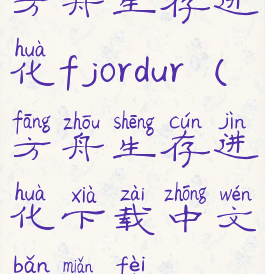 方舟生存进
huà
化fjordur（
fāng zhōu shēng cún jìn
方舟生存进
huà xià zài zhōng wén
化下载中文
bǎn miǎn fèi